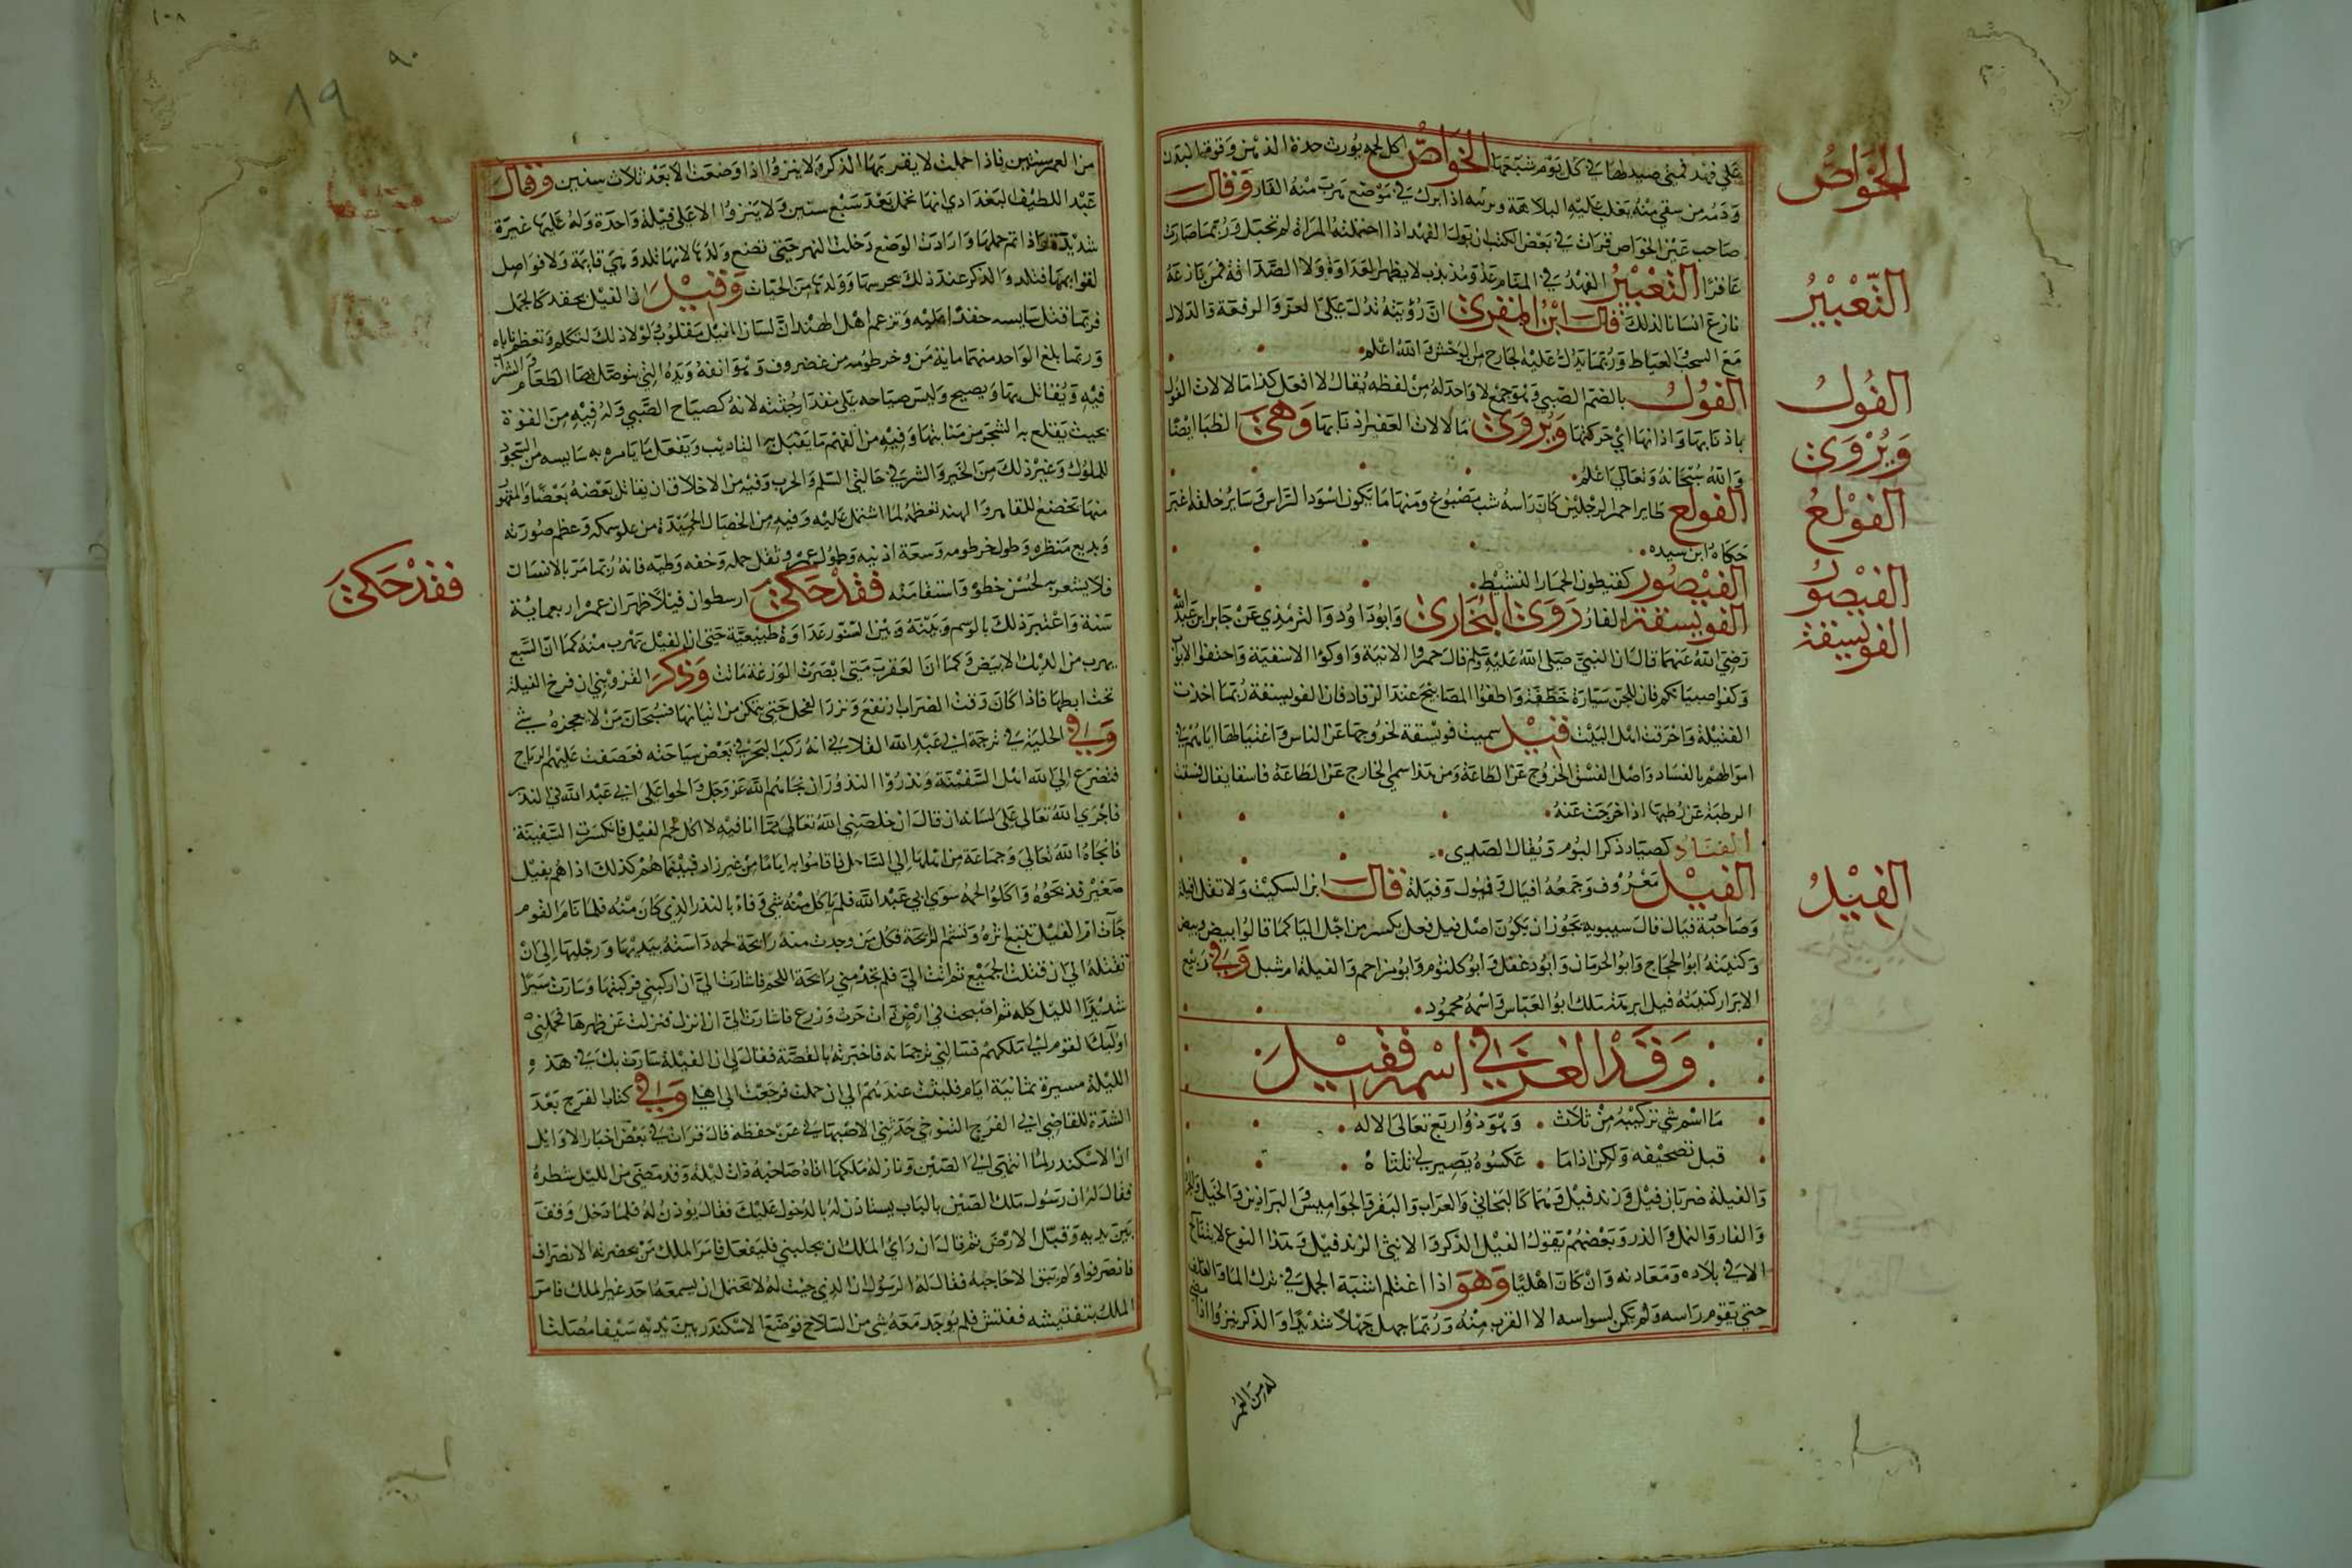 على فهد فمهنى صيد لها في كل يوم شبعها الخواص اكل لحمه يورث حدة الذهن وقوة البدن
ودمه من سقي منه يغلب عليه البلاهة وبرثنه اذا ترك في موضع هرب منه الفار وقال
صاحب عين الخواص قرات في بعض الكتب ان بول الفهد اذا احتملته المراة لم تحبل وربما صارت
عاقرا التعبير الفهد في المنام عدو مذبذب لا يظهر العداوة ولا الصداقة فمن نازعه
نازع انسانا لذلك قال ابن المقري ان رؤيته تدل على العز والرفعة والدلال
مع السحب والعياط وربما تدل عليه الجارح من الوحش والله اعلم
الفول بالضم الصبي وهو جمع لا واحد له من لفظه يقال لا افعل كذا ما لالات الفول
باذنابها واذانها اي حركتها ويروى ما لالات العفر اذنابها وهي الظبا ايضا
والله سبحانه وتعالى اعلم
الفولع طاير احمر الرجلين كان راسه شب مصبوغ ومنها ما يكون اسود الراس وساير خلقه اغبر
حكاه ابن سيده
الفيصور كقيطون الحمار النشيط
الفويسقة الفار روى البخاري وابو داود والترمذي عن جابر ابن عبد الله
رضي الله عنهما قال ان النبي صلى الله عليه وسلم قال خمروا الانية واوكوا الاسقية واجيفوا الابواب
وكفوا صبيانكم فان للجن سيارة خطفة واطفوا المصابيح عند الرقاد فان الفويسقة ربما اخذت
الفتيلة واحرقت اهل البيت قيل سميت فويسقة لخروجها عن الناس واغتيالها اياهم في
اموالهم بالفساد واصل الفسق الخروج عن الطاعة ومن هذا سمي الخارج عن الطاعة فاسقا يقال فسقت
الرطبة عن رطبها اذا خرجت عنه
الفياد كصياد ذكر البوم ويقال الصدى
الفيل معروف وجمعه افيال وفيول وفيلة قال ابن السكيت ولا تقل افيلة
وصاحبه فيال قال سيبويه يجوز ان يكون اصل فيل فعل بكسر من اجل اليا كما قالوا ابيض وبيض
وكنيته ابو الحجاج وابو الحرمان وابو دغفل وابو كلثوم وابو مزاحم والفيلة ام شبل وفي ربيع
الابرار كنية فيل ابرهة ملك ابو العباس واسمه محمود
وقد الغز في اسمه فقيل
ما اسم شي تركيبه من ثلاث وهو ذو اربع تعالى الاله
قيل تصحيفه ولكن اذا ما عكسوه يصير لي ثلثاه
والفيلة ضربان فيل وزندفيل وهما كالبخاتي والعراب والبقر والجواميس والبراذين والخيل
والفار والنمل والذر وبعضهم يقول الفيل الذكر والانثى الزندفيل وهذا النوع لا يتناتج
الا في بلاده ومعادنه وان كان اهليا وهو اذا اغتلم اشبه الجمل في ترك الما والعلف
حتى يتورم راسه ولم يكن لسواسه الا الهرب منه وربما جهل جهلا شديدا والذكر ينزوا اذا
له من العمر
الخواص
التعبير
الفول
ويروى
الفولع
الفيصور
الفويسقة
الفيل
١٠٨
٩٠
٨٩
من العمر سنين فاذا حملت لا يقربها الذكر ولا ينزوا اذا وضعت الا بعد ثلاث سنين وقال
عبد اللطيف البغدادي انها تحمل بعد سبع سنين ولا ينزوا الا على فيلة واحدة وله عليها غيرة
شديدة واذا تم حملها وارادت الوضع دخلت النهر حتى تضع ولدها لانها تلد وهي قايمة ولا فواصل
لقوايمها فتلد والذكر عند ذلك يحرسها وولدها من الحيات وقيل ان الفيل يحقد كالجمل
فربما قتل سايسه حقدا عليه وتزعم اهل الهند ان لسان الفيل مقلوب ولولا ذلك لتكلم وتعظم ناباه
وربما بلغ الواحد منهما ماية من وخرطومه من غضروف وهو انفه ويده التي يتوصل بها الطعام والشراب
فيه ويقاتل بها ويصيح وليس صياحه على مقدار جثته لانه كصياح الصبي وله فيه من القوة
بحيث يقلع به الشجر من منابتها وفيه من الفهم ما يقبل به التاديب ويفعل ما يامره به سايسه من السجود
للملوك وغير ذلك من الخير والشر في حالتي السلم والحرب وفيه من الاخلاق ان يقاتل بعضه بعضا والمقهور
منها يخضع للقاهر والهند تعظمه لما اشتمل عليه وفيه من الخصال الحميدة من علو سمكه وعظم صورته
وبديع منظره وطول خرطومه وسعة اذنيه وطول عمره وثقل حمله وخفة وطيه فانه ربما مر بالانسان
فلا يشعر به لحسن خطوه واستقامته فقد حكى ارسطو ان فيلا ظهر ان عمره اربعماية
سنة واعتبر ذلك بالوسم وبينه وبين السنور عداوة طبيعية حتى ان الفيل يهرب منه كما ان السبع
يهرب من الديك الابيض وكما ان العقرب متى ابصرت الوزغة ماتت وذكر القزويني ان فرج الفيلة
تحت ابطها فاذا كان وقت الضراب ارتفع وبرز للفحل حتى يتمكن من اتيانها فسبحان من لا يعجزه شي
وفي الحلية في ترجمة ابي عبد الله القلانسي انه ركب البحر في بعض سياحته فعصفت عليهم الرياح
فتضرع الى الله اهل السفينة ونذروا النذور ان نجاهم الله عز وجل والحوا على ابي عبد الله في النذر
فاجرى الله تعالى على لسانه ان قال ان خلصني الله تعالى مما انا فيه لا اكل لحم الفيل فانكسرت السفينة
فانجاه الله تعالى وجماعة من اهلها الى الساحل فاقاموا به اياما من غير زاد فبينما هم كذلك اذا هم بفيل
صغير فذبحوه واكلوا لحمه سوى ابي عبد الله فلم ياكل منه شي وفاء بالنذر الذي كان منه فلما نام القوم
جات ام الفيل تتبع اثره وتشم الرايحة فكل من وجدت منه رايحة لحمه داسته بيديها ورجليها الى ان
تقتله الى ان قتلت الجميع ثم اتت الي فلم تجد مني رايحة اللحم فاشارت الي ان اركبني فركبتها وسارت سيرا
شديدا الليل كله ثم اصبحت في ارض ذات حرث وزرع فاشارت الي ان انزل فنزلت عن ظهرها فحملني
اوليك القوم الى ملكهم فسالني ترجمانه فاخبرته بالقصة فقال لي ان الفيلة سارت بك في هذه
الليلة مسيرة ثمانية ايام فلبثت عندهم الى ان حملت فرجعت الى اهلي وفي كتاب الفرج بعد
الشدة للقاضي ابي الفرج التنوخي حدثني الاصبهاني عن حفظه قال قرات في بعض اخبار الاوايل
ان الاسكندر لما انتهى الى الصين ونازله ملكها اتاه صاحبه ذات ليلة وقد مضى من الليل شطره
فقال له ان رسول ملك الصين بالباب يستاذن له بالدخول عليك فقال يوذن له فلما دخل وقف
بين يديه وقبل الارض ثم قال ان راى الملك ان يخليني فليفعل فامر الملك من بحضرته الانصراف
فانصرفوا ولم يبق الا حاجبه فقال له الرسول ان الذي جيت له لا يحتمل ان يسمعه احد غير الملك فامر
الملك بتفتيشه ففتش فلم يوجد معه شي من السلاح فوضع الاسكندر بين يديه سيفا مصلتا
فقد حكى